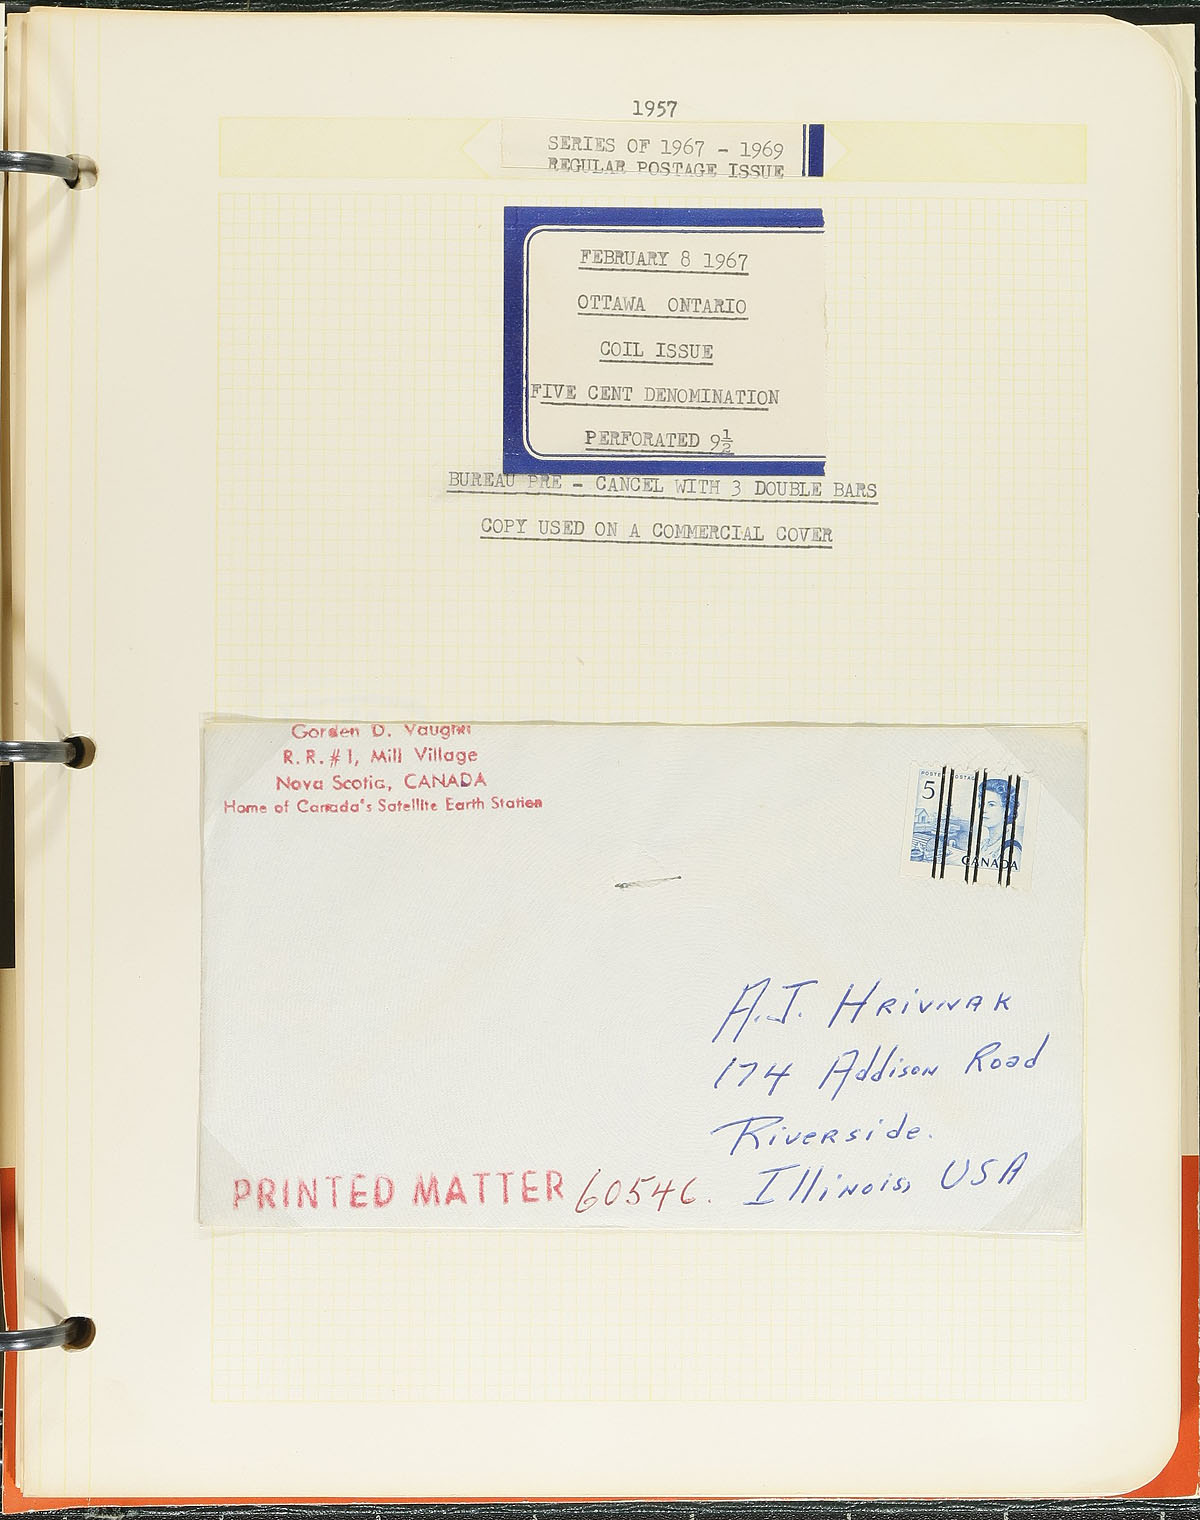 1957
SERIES OF 1967 - 1969
REGULAR POSTAGE ISSUE
FEBRUARY 8 1967
OTTAWA ONTARIO
COIL ISSUE
FIVE CENT DENOMINATION
PERFORATED 9½
BUREAU PRE - CANCEL WITH 3 DOUBLE BARS
COPY USED ON A COMMERCIAL COVER
Gorden D. Vaughn
R.R.#1, Mill Village
Nova Scotia, CANADA
Home of Canada's Satellite Earth Station
POSTES POSTAGE
5
CANADA
A.J. HRIVNAK
174 Addison Road
Riverside.
Illinois, USA
PRINTED MATTER 60546.